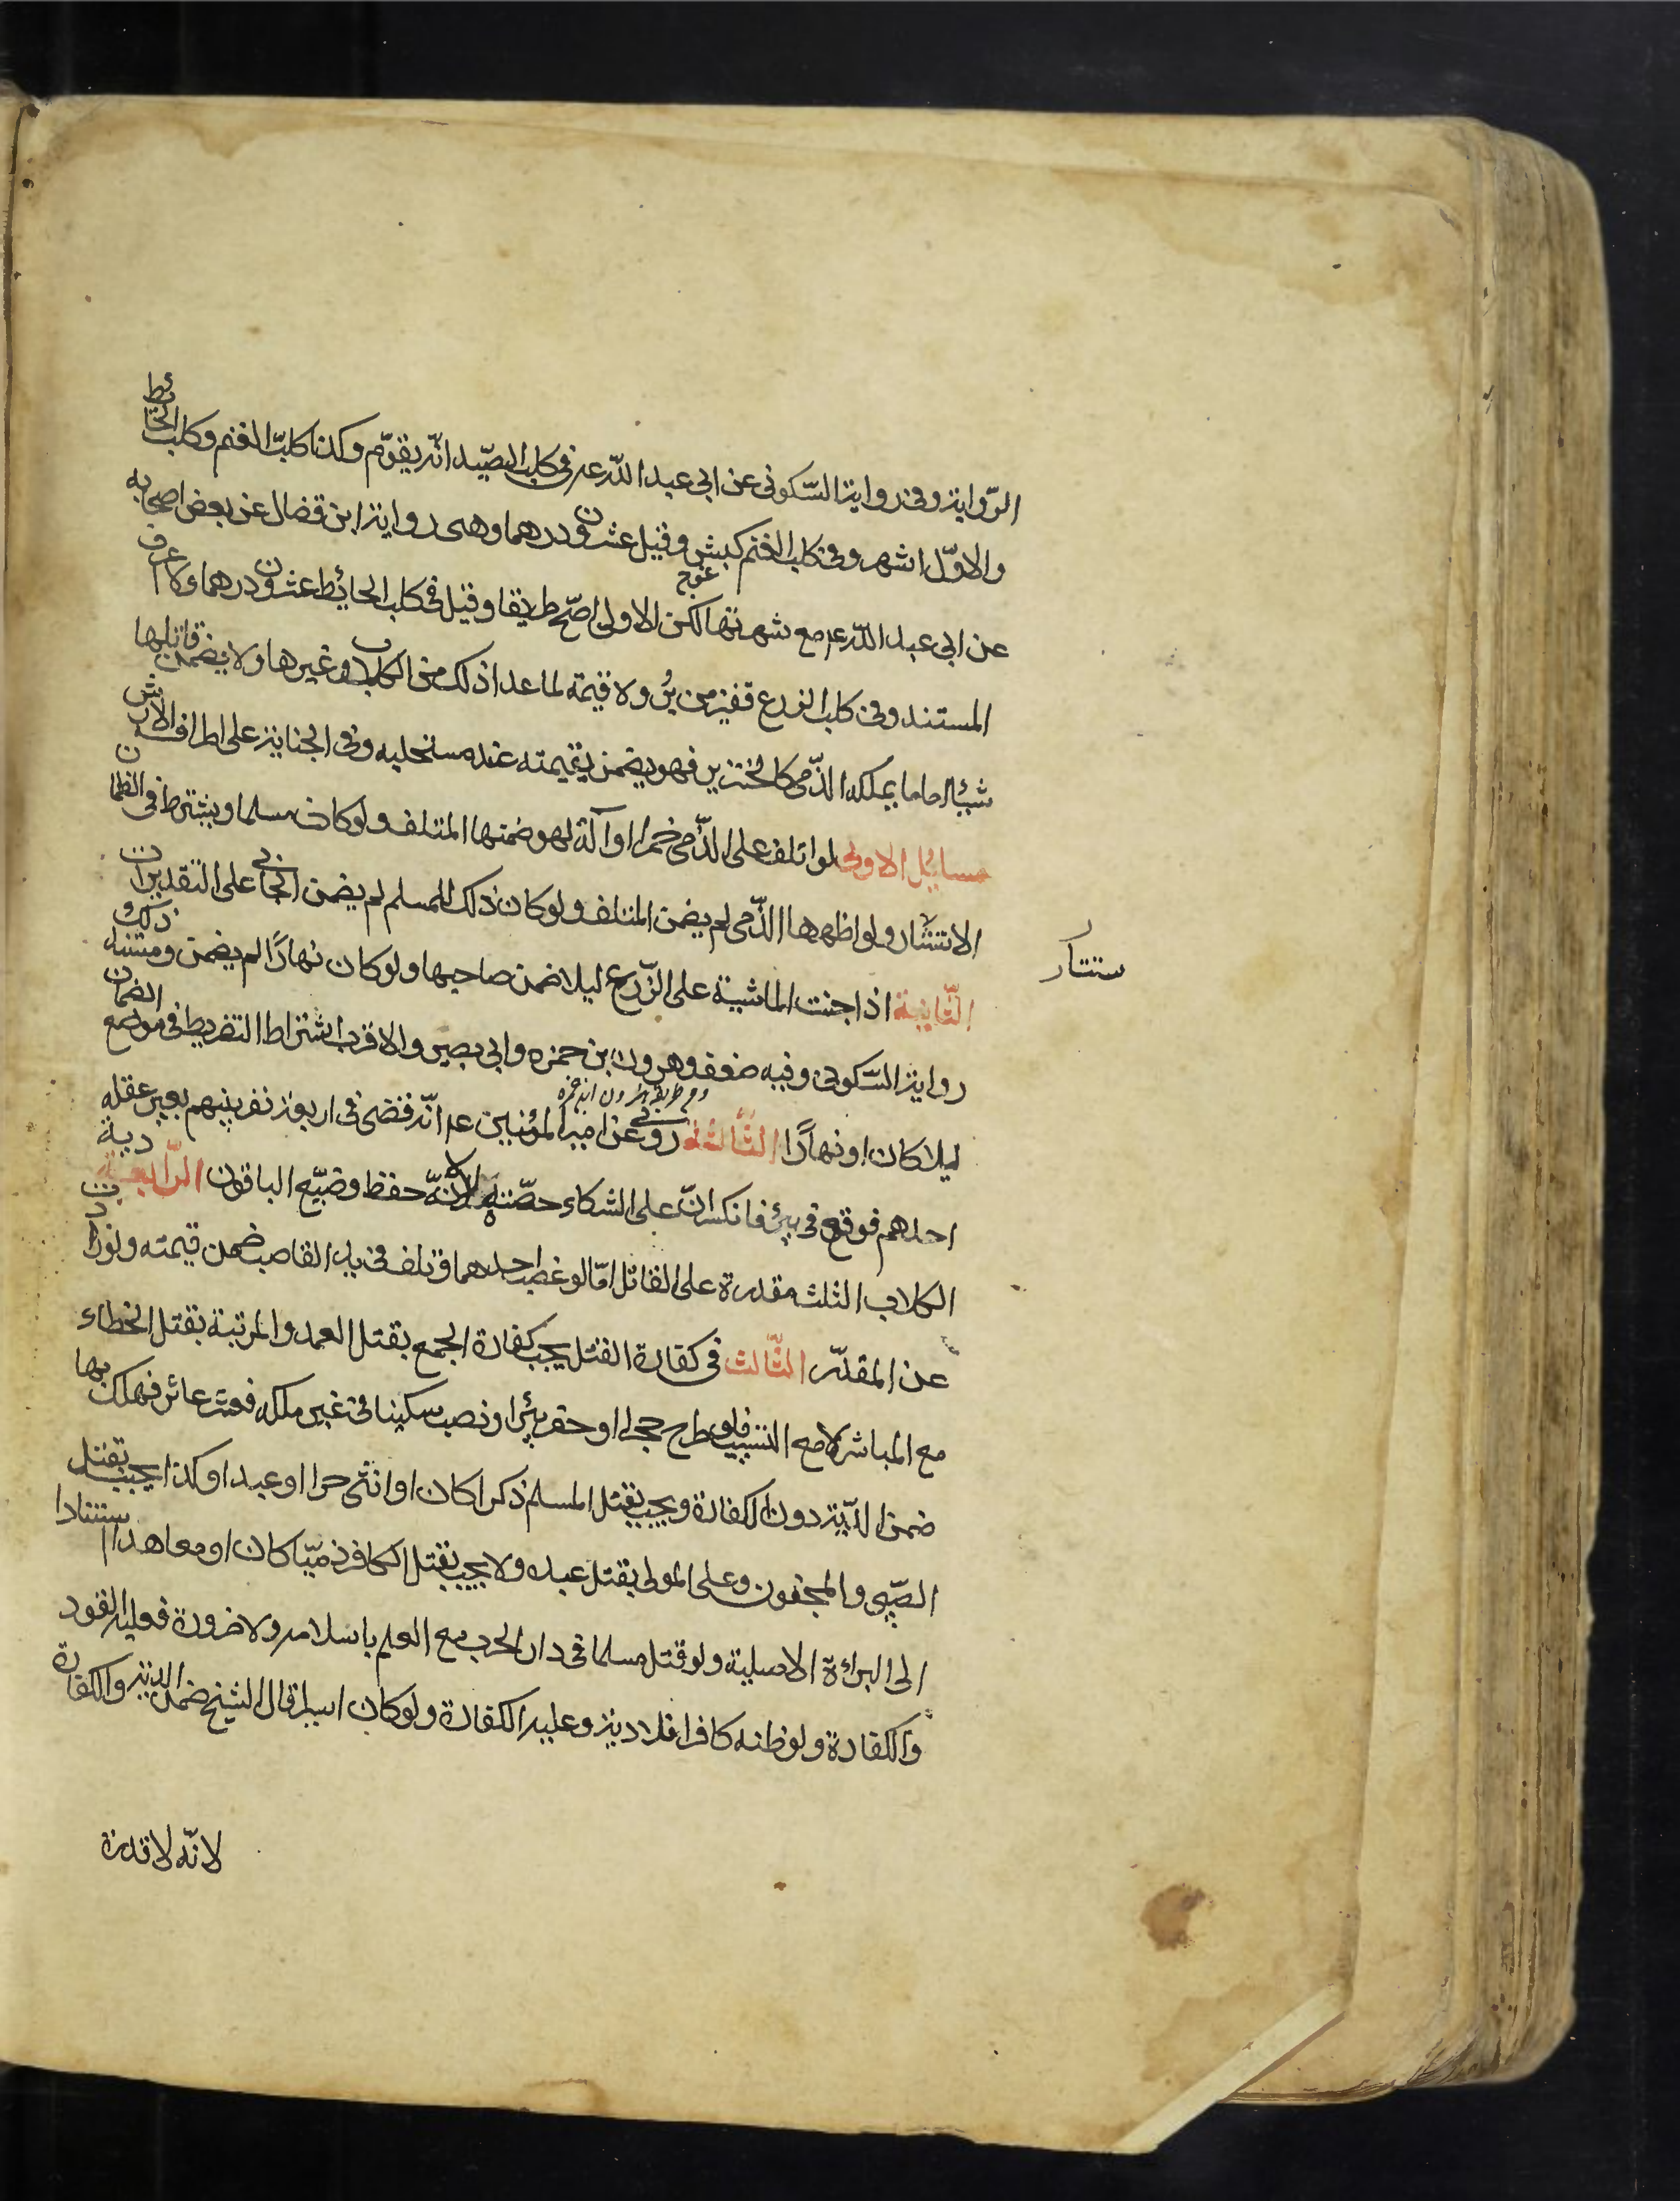 الرّواية وفى رواية السّكونى عن ابى عبد اللّه ع فى كلب الصّيد انّه يقوّم وكذا كلب الغنم وكلب الحائط
والاوّل اشهر وفى كلب الغنم كبش وقيل عشرون درهما وهى رواية ابن فضال عن بعض اصحابه
عن ابى عبد اللّه ع مع شهرتها لكن الاولى اصحّ طريقا وقيل فى كلب الحائط عشرون درهما ولا اعرف
المستند وفى كلب الزرع قفيز من بُر ولا قيمة لما عدا ذلك من الكلاب وغيرها ولا يضمن قاتلها
شيئا اما ما يملكه الذّمى كالخنزير فهو يضمن بقيمته عند مستحليه وفى الجناية على اطرافه الارش
مسائل الاولى لو اتلف على الذّمى خمرا او آلة لهو ضمنها المتلف ولو كان مسلما ويشترط فى الضمان
الاستتار ولو اظهرها الذّمى لم يضمن المتلف ولو كان ذلك للمسلم لم يضمن الجانى على التقديرات
ستتار
الثّانية اذا جنت الماشية على الزّرع ليلا ضمن صاحبها ولو كان نهارًا لم يضمن ومستند ذلك
رواية السّكونى وفيه ضعف وهرون بن حمزه وابى بصير والاقرب اشتراط التفريط فى موضع الضمان
ليلا كان او نهارًا الثّالثة روى عن امير المؤمنين ع انّه قضى فى اربعة نفر بينهم بعير عقله
احدهم فوقع فى بئر فانكسر انّ على الشركاء حصّته لانّه حفظ وضيّع الباقون الرّابعة دية
الكلاب الثلثه مقدرة على القاتل امّا لو غصب احدهما وتلف فى يد الغاصب ضمن قيمته ولو زادت
عن المقدّر الثّالث فى كفارة القتل يجب كفارة الجمع بقتل العمد والمرتبة بقتل الخطاء
مع المباشرة لا مع التسبيب فلو طرح حجرا او حفر بئرا او نصب سكينا فى غير ملكه فعثر عاثر فهلك بها
ضمن الدّية دون الكفارة ويجب بقتل المسلم ذكرا كان او انثى حرا او عبدا وكذا يجب بقتل
الصّبى والمجنون وعلى المولى بقتل عبده ولا يجب بقتل الكافر ذميّا كان او معاهدا استنادا
الى البرائة الاصلية ولو قتل مسلما فى دار الحرب مع العلم باسلامه ولا ضرورة فعليه القود
والكفارة ولو ظنه كافرا فلا دية وعليه الكفارة ولو كان اسيرا قال الشيخ ضمن الدية والكفارة
لانّه لا قدرة